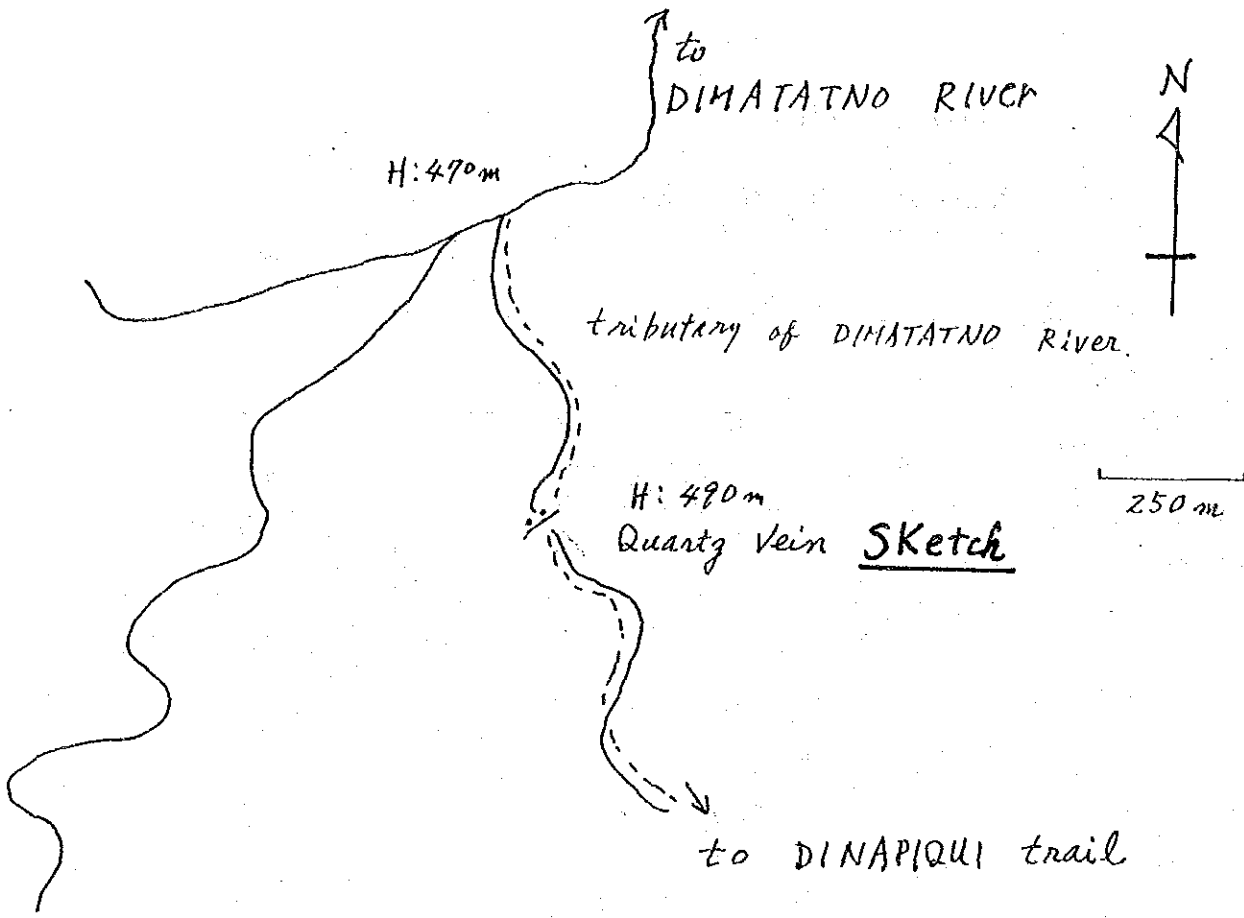 to
DIMATATNO River
N
H: 470m
tributary of DIMATATNO River.
H: 490m
250 m
Quartz Vein Sketch
to DINAPIQUI trail